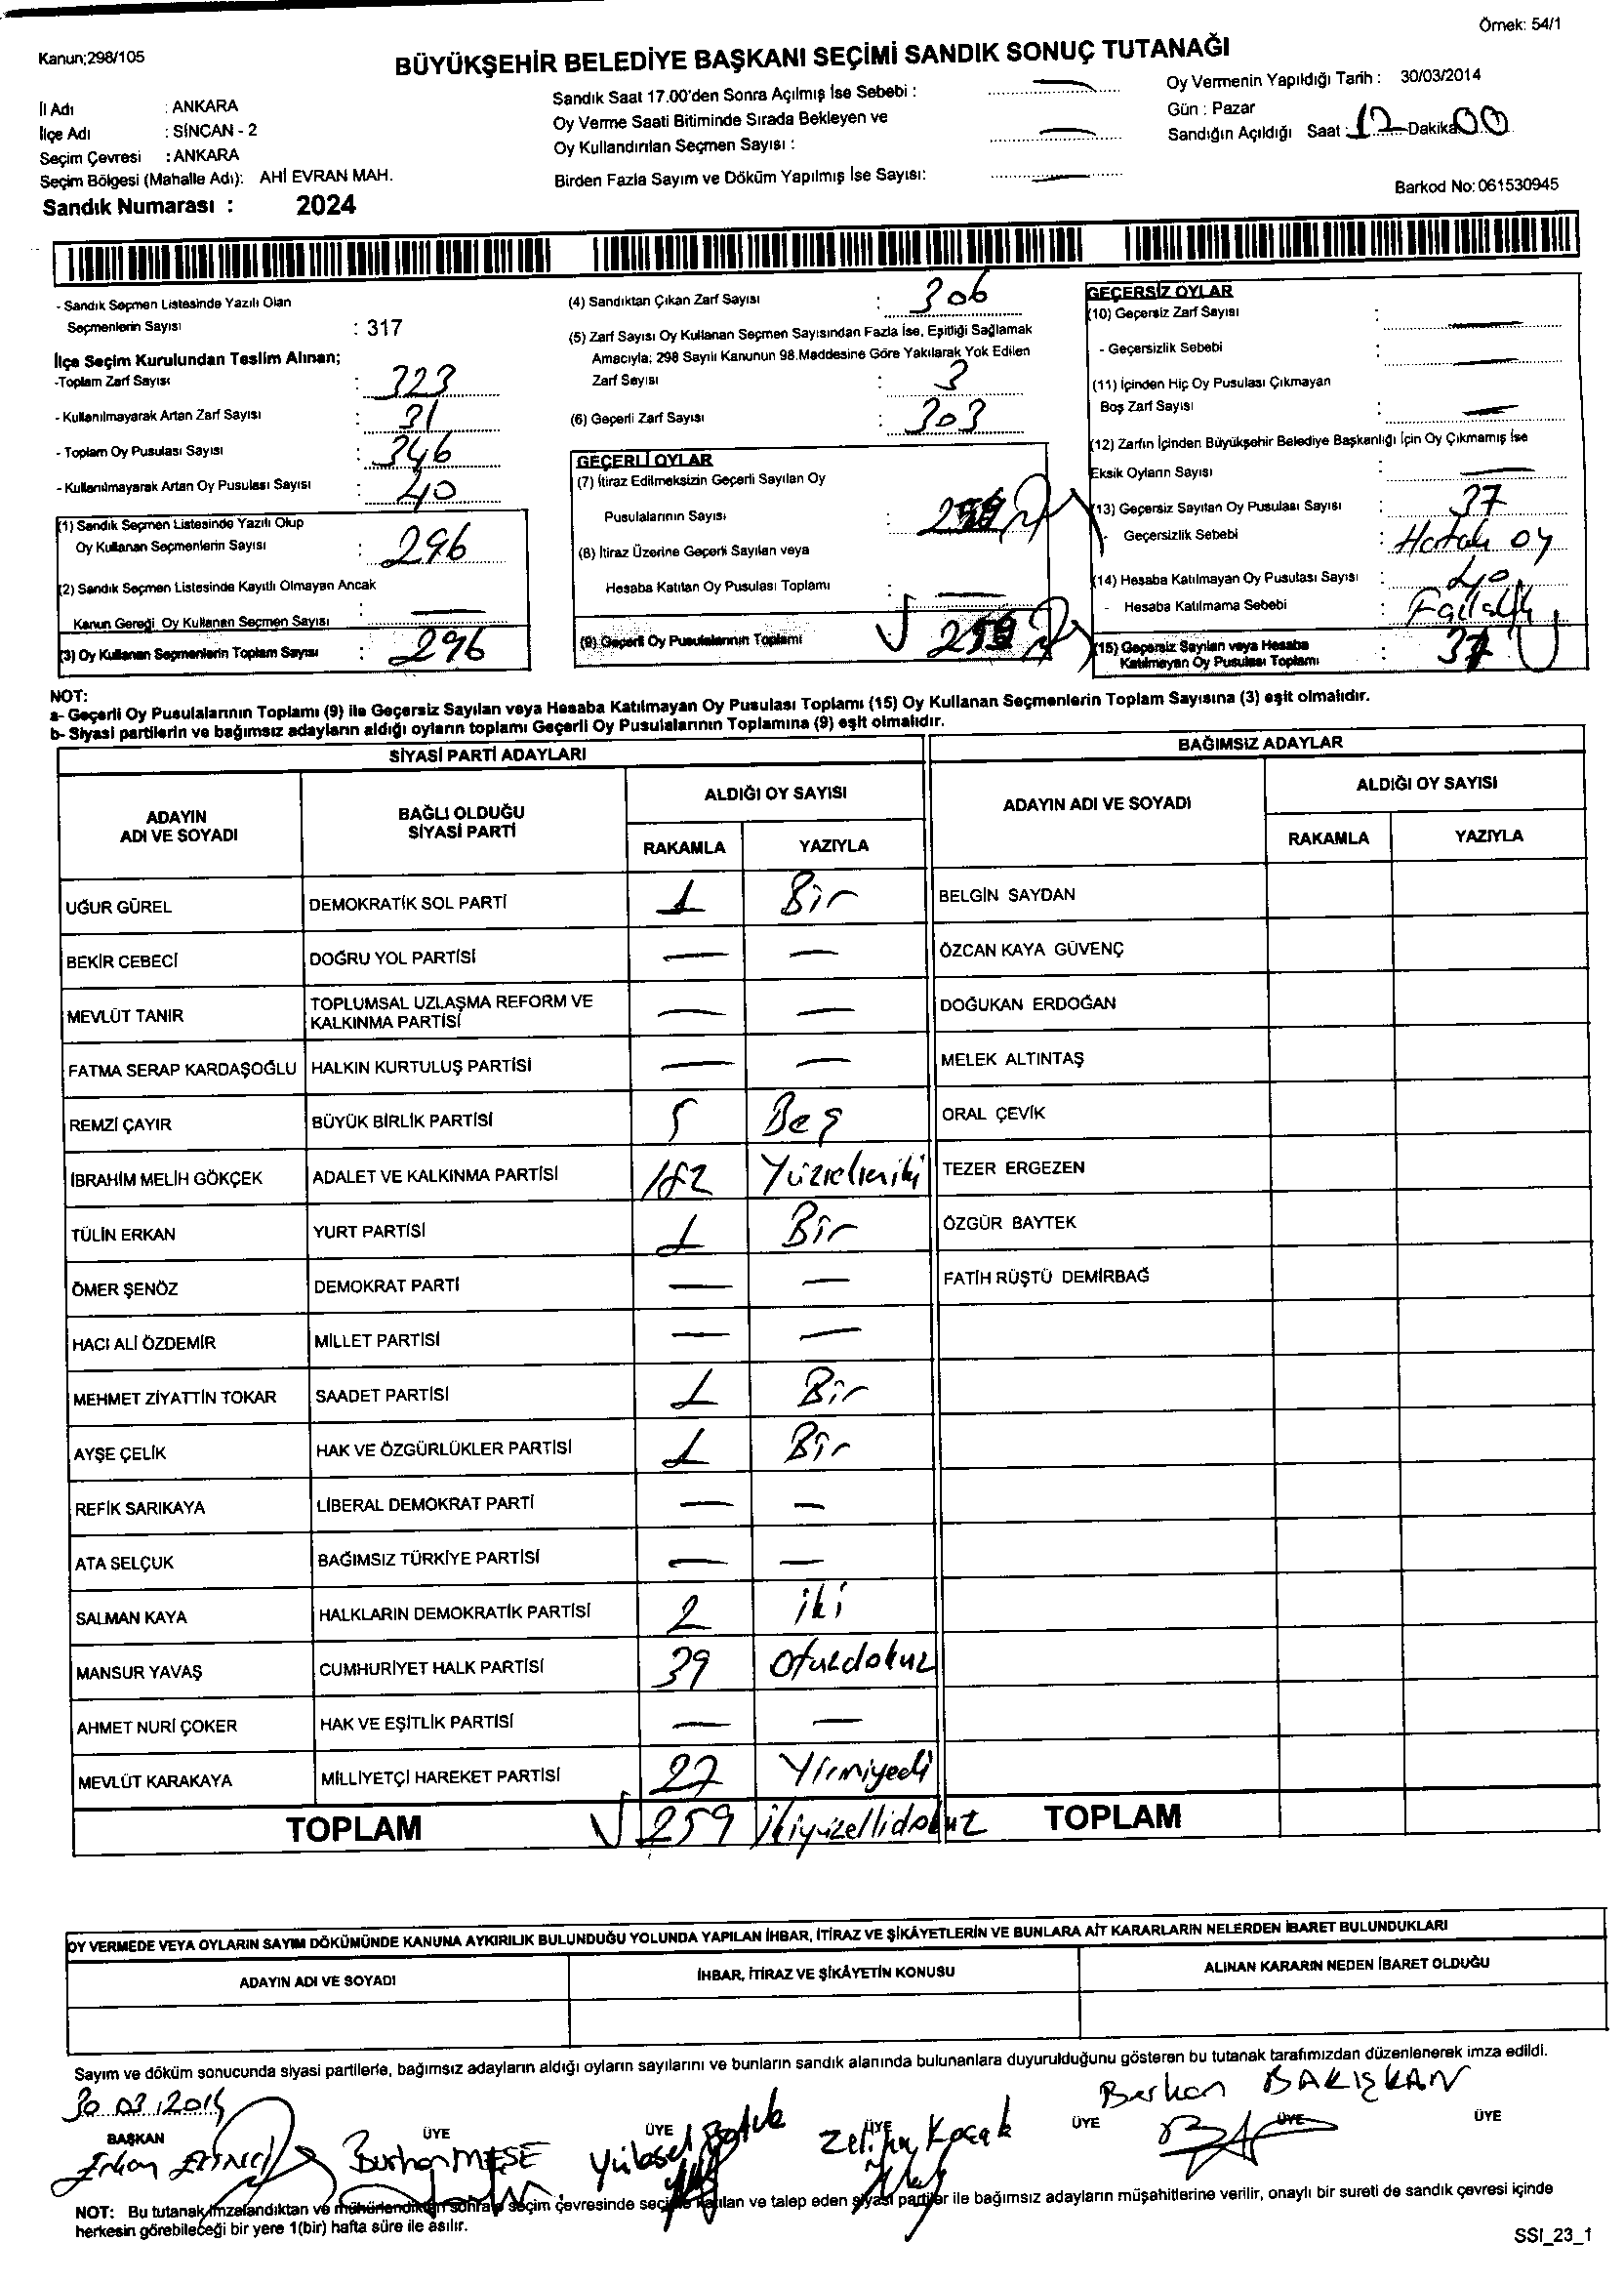 Örnek: 54/1
Kanun;298/105
BÜYÜKŞEHİR BELEDİYE BAŞKANI SEÇİMİ SANDIK SONUÇ TUTANAĞI
İl Adı : ANKARA
İlçe Adı : SİNCAN - 2
Seçim Çevresi : ANKARA
Seçim Bölgesi (Mahalle Adı): AHİ EVRAN MAH.
Sandık Numarası : 2024
Sandık Saat 17.00'den Sonra Açılmış İse Sebebi : —
Oy Verme Saati Bitiminde Sırada Bekleyen ve
Oy Kullandırılan Seçmen Sayısı : —
Birden Fazla Sayım ve Döküm Yapılmış İse Sayısı: —
Oy Vermenin Yapıldığı Tarih : 30/03/2014
Gün : Pazar
Sandığın Açıldığı Saat : 12 Dakika 00
Barkod No: 061530945
- Sandık Seçmen Listesinde Yazılı Olan
Seçmenlerin Sayısı : 317
İlçe Seçim Kurulundan Teslim Alınan;
-Toplam Zarf Sayısı : 323
- Kullanılmayarak Artan Zarf Sayısı : 31
- Toplam Oy Pusulası Sayısı : 346
- Kullanılmayarak Artan Oy Pusulası Sayısı : 40
(1) Sandık Seçmen Listesinde Yazılı Olup
Oy Kullanan Seçmenlerin Sayısı : 296
(2) Sandık Seçmen Listesinde Kayıtlı Olmayan Ancak
Kanun Gereği Oy Kullanan Seçmen Sayısı : —
(3) Oy Kullanan Seçmenlerin Toplam Sayısı : 296
(4) Sandıktan Çıkan Zarf Sayısı : 306
(5) Zarf Sayısı Oy Kullanan Seçmen Sayısından Fazla İse, Eşitliği Sağlamak
Amacıyla; 298 Sayılı Kanunun 98.Maddesine Göre Yakılarak Yok Edilen
Zarf Sayısı : 3
(6) Geçerli Zarf Sayısı : 303
GEÇERLİ OYLAR
(7) İtiraz Edilmeksizin Geçerli Sayılan Oy
Pusulalarının Sayısı : 259
(8) İtiraz Üzerine Geçerli Sayılan veya
Hesaba Katılan Oy Pusulası Toplamı : —
(9) Geçerli Oy Pusulalarının Toplamı 259
GEÇERSİZ OYLAR
(10) Geçersiz Zarf Sayısı : —
- Geçersizlik Sebebi : —
(11) İçinden Hiç Oy Pusulası Çıkmayan
Boş Zarf Sayısı : —
(12) Zarfın İçinden Büyükşehir Belediye Başkanlığı İçin Oy Çıkmamış İse
Eksik Oyların Sayısı : —
(13) Geçersiz Sayılan Oy Pusulası Sayısı : 37
- Geçersizlik Sebebi : Hatalı oy
(14) Hesaba Katılmayan Oy Pusulası Sayısı : 40
- Hesaba Katılmama Sebebi :
(15) Geçersiz Sayılan veya Hesaba
Katılmayan Oy Pusulası Toplamı : 37
NOT:
a- Geçerli Oy Pusulalarının Toplamı (9) ile Geçersiz Sayılan veya Hesaba Katılmayan Oy Pusulası Toplamı (15) Oy Kullanan Seçmenlerin Toplam Sayısına (3) eşit olmalıdır.
b- Siyasi partilerin ve bağımsız adayların aldığı oyların toplamı Geçerli Oy Pusulalarının Toplamına (9) eşit olmalıdır.
SİYASİ PARTİ ADAYLARI
ADAYIN ADI VE SOYADI
BAĞLI OLDUĞU SİYASİ PARTİ
ALDIĞI OY SAYISI
RAKAMLA YAZIYLA
UĞUR GÜREL DEMOKRATİK SOL PARTİ 1 Bir
BEKİR CEBECİ DOĞRU YOL PARTİSİ — —
MEVLÜT TANIR TOPLUMSAL UZLAŞMA REFORM VE KALKINMA PARTİSİ — —
FATMA SERAP KARDAŞOĞLU HALKIN KURTULUŞ PARTİSİ — —
REMZİ ÇAYIR BÜYÜK BİRLİK PARTİSİ 5 Beş
İBRAHİM MELİH GÖKÇEK ADALET VE KALKINMA PARTİSİ 182 Yüzsekseniki
TÜLİN ERKAN YURT PARTİSİ 1 Bir
ÖMER ŞENÖZ DEMOKRAT PARTİ — —
HACI ALİ ÖZDEMİR MİLLET PARTİSİ — —
MEHMET ZİYATTİN TOKAR SAADET PARTİSİ 1 Bir
AYŞE ÇELİK HAK VE ÖZGÜRLÜKLER PARTİSİ 1 Bir
REFİK SARIKAYA LİBERAL DEMOKRAT PARTİ — —
ATA SELÇUK BAĞIMSIZ TÜRKİYE PARTİSİ — —
SALMAN KAYA HALKLARIN DEMOKRATİK PARTİSİ 2 iki
MANSUR YAVAŞ CUMHURİYET HALK PARTİSİ 39 Otuzdokuz
AHMET NURİ ÇOKER HAK VE EŞİTLİK PARTİSİ — —
MEVLÜT KARAKAYA MİLLİYETÇİ HAREKET PARTİSİ 27 Yirmiyedi
TOPLAM 259 ikiyüzellidokuz
BAĞIMSIZ ADAYLAR
ADAYIN ADI VE SOYADI
ALDIĞI OY SAYISI
RAKAMLA YAZIYLA
BELGİN SAYDAN
ÖZCAN KAYA GÜVENÇ
DOĞUKAN ERDOĞAN
MELEK ALTINTAŞ
ORAL ÇEVİK
TEZER ERGEZEN
ÖZGÜR BAYTEK
FATİH RÜŞTÜ DEMİRBAĞ
TOPLAM
OY VERMEDE VEYA OYLARIN SAYIM DÖKÜMÜNDE KANUNA AYKIRILIK BULUNDUĞU YOLUNDA YAPILAN İHBAR, İTİRAZ VE ŞİKÂYETLERİN VE BUNLARA AİT KARARLARIN NELERDEN İBARET BULUNDUKLARI
ADAYIN ADI VE SOYADI
İHBAR, İTİRAZ VE ŞİKÂYETİN KONUSU
ALINAN KARARIN NEDEN İBARET OLDUĞU
Sayım ve döküm sonucunda siyasi partilerle, bağımsız adayların aldığı oyların sayılarını ve bunların sandık alanında bulunanlara duyurulduğunu gösteren bu tutanak tarafımızdan düzenlenerek imza edildi.
30.03.2014
Berkan BAKIŞKAN
BAŞKAN ÜYE ÜYE ÜYE ÜYE ÜYE ÜYE
Burhan MEŞE Yüksel Zeliha Koçak
NOT: Bu tutanak imzalandıktan ve mühürlendikten sonra seçim çevresinde seçime katılan ve talep eden siyasi partiler ile bağımsız adayların müşahitlerine verilir, onaylı bir sureti de sandık çevresi içinde
herkesin görebileceği bir yere 1(bir) hafta süre ile asılır.
SSI_23_1